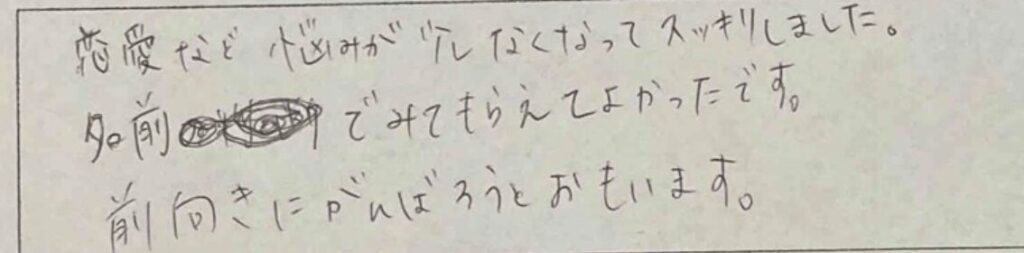 恋愛など悩みが少しなくなってスッキリしました。
名前でみてもらえてよかったです。
前向きにがんばろうとおもいます。